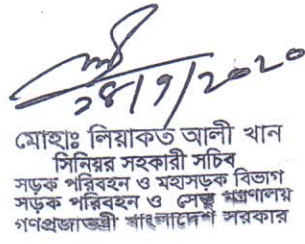 ২৪/৭/২০২০
মোহাঃ লিয়াকত আলী খান
সিনিয়র সহকারী সচিব
সড়ক পরিবহন ও মহাসড়ক বিভাগ
সড়ক পরিবহন ও সেতু মন্ত্রণালয়
গণপ্রজাতন্ত্রী বাংলাদেশ সরকার